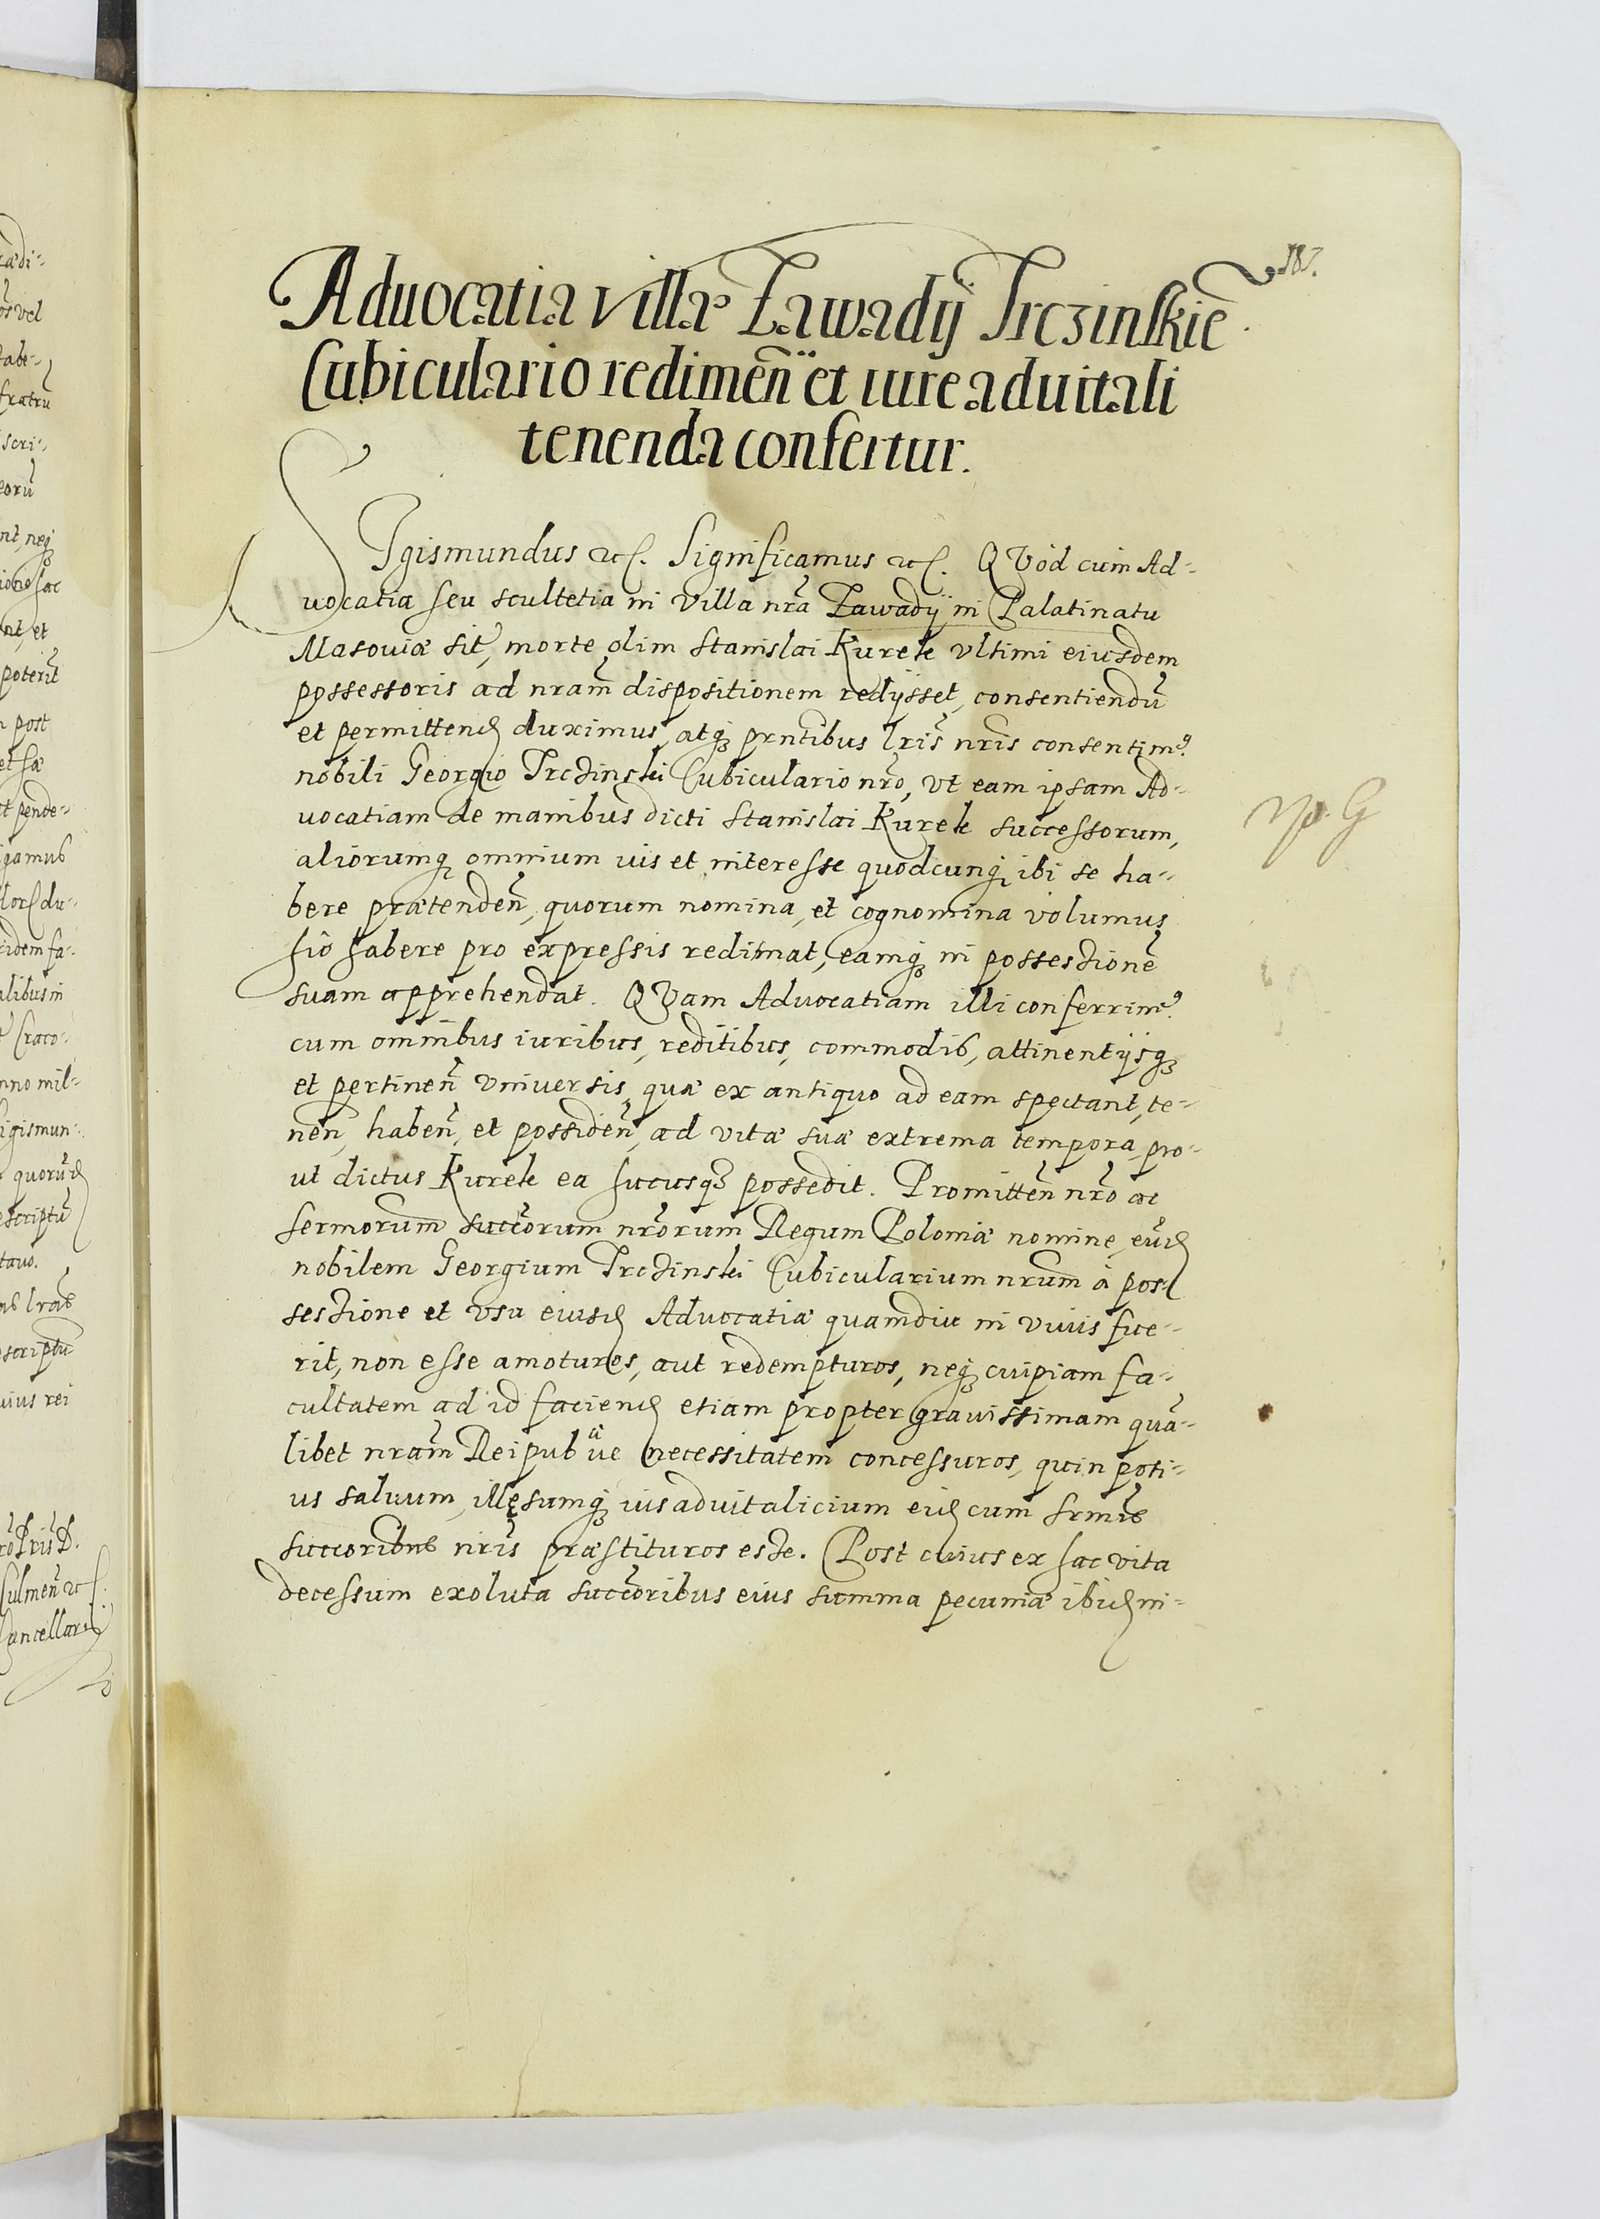 187.
Aduocatia villæ Zawadÿ Trczinskie
Cubiculario redimen̄ et iure aduitali
tenenda confertur.
SIgismundus etc. Significamus etc. QVod cum Ad-
uocatia seu scultetia in villa nrã Zawadÿ in Palatinatu
Masouiæ sit, morte olim Stanislai Kurek vltimi eiusdem
possessoris ad nram̃ dispositionem redijsset, consentiendũ
et permittend duximus, atq prñtibus lris̃ nris̃ consentim9
nobili Georgio Trczinski Cubiculario nrõ, vt eam ipsam Ad-
uocatiam de manibus dicti Stanislai Kurek successorum,
aliorumq omnium ius et interesse quodcunq ibi se ha-
bere prætenden̄, quorum nomina, et cognomina volumus
hic habere pro expressis redimat, eamq in possessionẽ
suam apprehendat. QVam Aduocatiam illi conferrim9
cum omnibus iuribus, reditibus, commodis, attinentijsq
et pertinen̄ vniuersis, quæ ex antiquo ad eam spectant, te-
nen̄, haben̄, et possiden̄, ad vitæ suæ extrema tempora, pro-
ut dictus Kurek ea hucusq possedit. Promitten̄ nrõ ac
sermorum succorum̃ nrõrum Regum Poloniæ nomine, eund
nobilem Georgium Trczinski Cubicularium nrum̃ à pos-
sessione et vsu eiusd Aduocatiæ quamdiu in viuis fue-
rit, non esse amoturos, aut redempturos, neq cuipiam fa-
cultatem ad id faciend etiam propter grauissimam quã-
libet nram̃ Reipub üe necessitatem concessuros, quin poti-
us saluum, illęsumq ius aduitalicium eid cum srmis̃
succoribus nris̃ præstituros esse. Post cuius ex hac vita
decessum exoluta succoribus̃ eius summa pecuniæ ibid in-